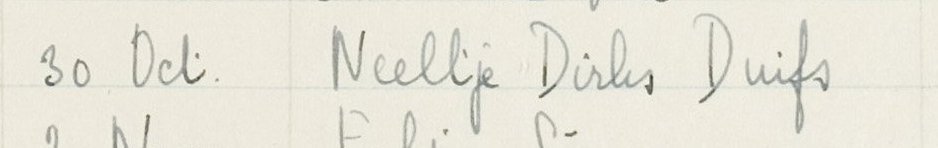 30 Oct. Neeltje Dirks Duifs